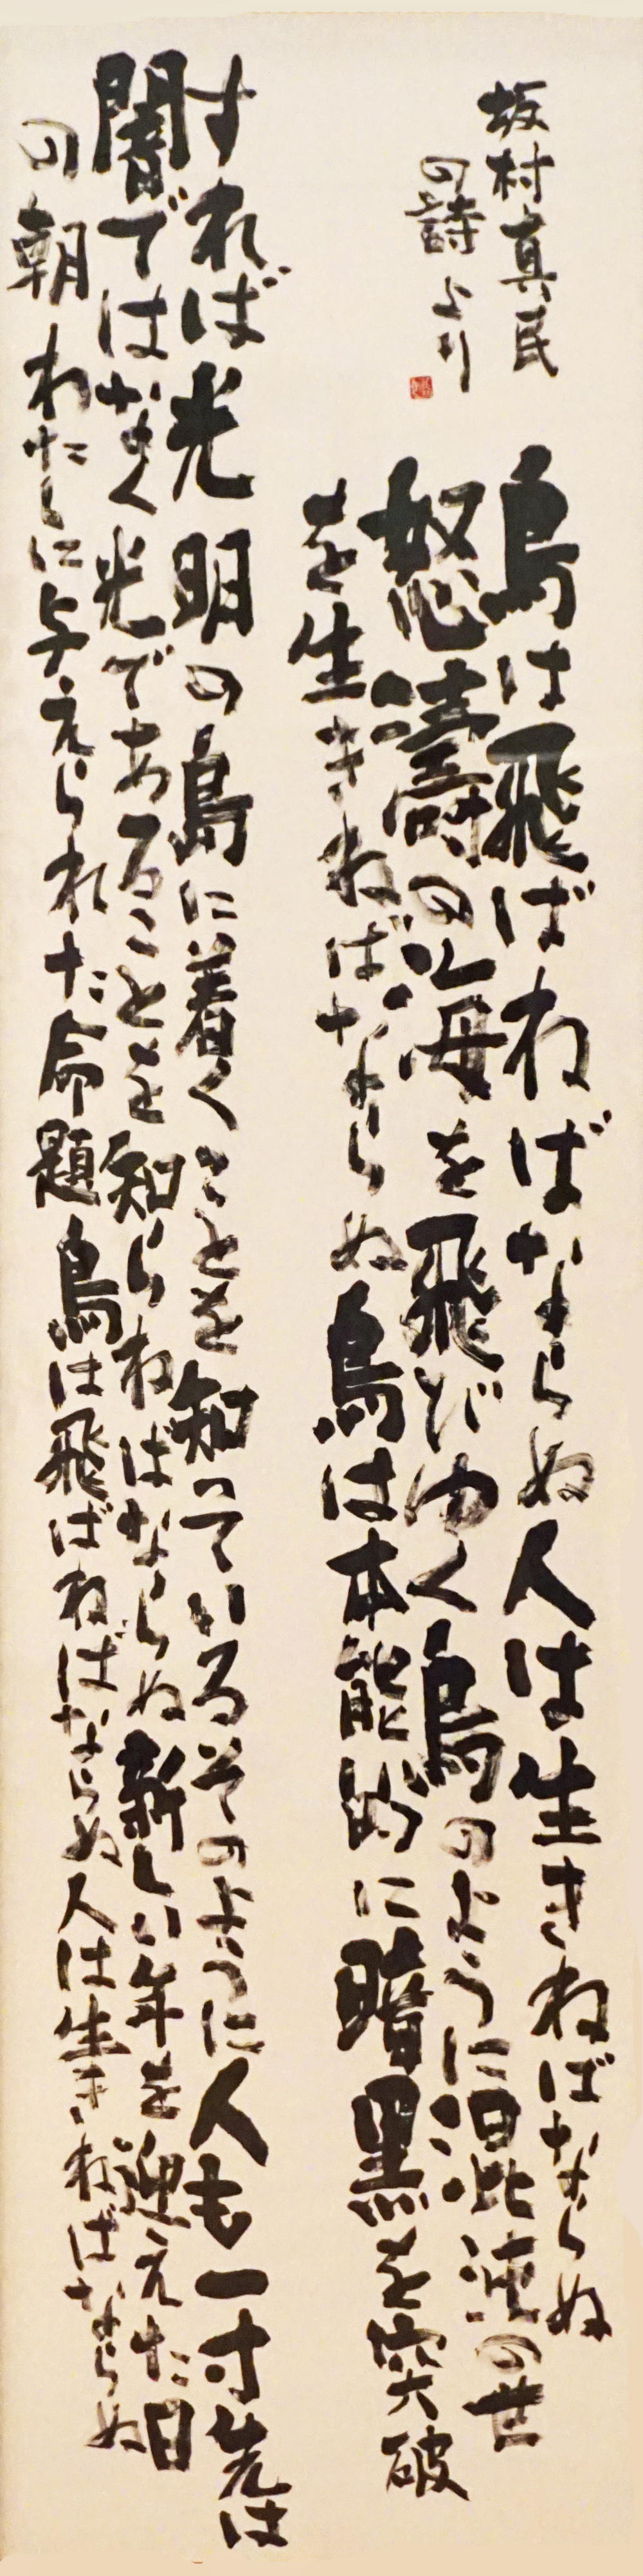 鳥は飛ばねばならぬ人は生きねばならぬ
怒濤の海を飛びゆく鳥のように混沌の世
を生きねばならぬ鳥は本能的に暗黒を突破
すれば光明の島に着くことを知っているそのように人も一寸先は
闇ではなく光であることを知らねばならぬ新しい年を迎えた日
の朝わたしに与えられた命題鳥は飛ばねばならぬ人は生きねばならぬ
坂村真民
の詩より